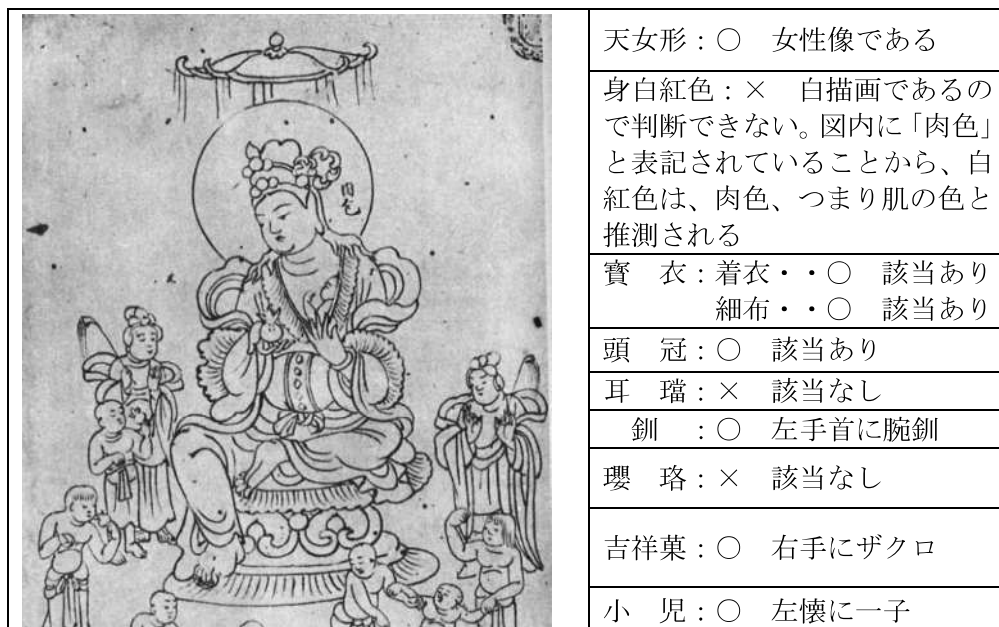 肉色
天女形：○　女性像である
身白紅色：×　白描画であるの
で判断できない。図内に「肉色」
と表記されていることから、白
紅色は、肉色、つまり肌の色と
推測される
寳　衣：着衣・・○　該当あり
細布・・○　該当あり
頭　冠：○　該当あり
耳　璫：×　該当なし
釧　：○　左手首に腕釧
瓔　珞：×　該当なし
吉祥菓：○　右手にザクロ
小　児：○　左懐に一子